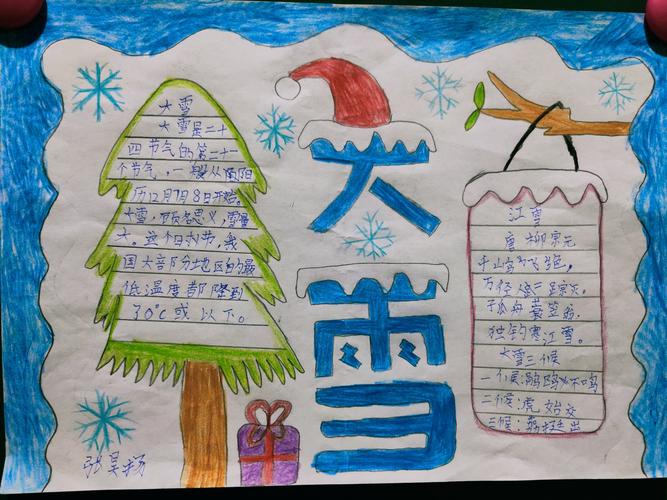 大雪
大雪是二十
四节气的第二十一
个节气,一般从阳
历12月7 8日开始。
大雪,顾名思义,雪量
大。这个时节,我
国大部分地区的最
低温度都降到
了0℃或以下。
张昊扬
大雪
江雪
唐 柳宗元
千山鸟飞绝,
万径人踪灭。
孤舟蓑笠翁,
独钓寒江雪。
大雪三候
一候:鹖鴠不鸣
二候:虎始交
三候:荔挺出